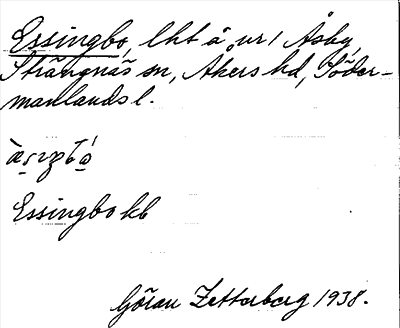 Essingbo, lht å nr 1 Åsby,
Strängnäs sn, Åkers hd, Söder-
manlands l.
Essingbo kb
Göran Zetterberg 1938.